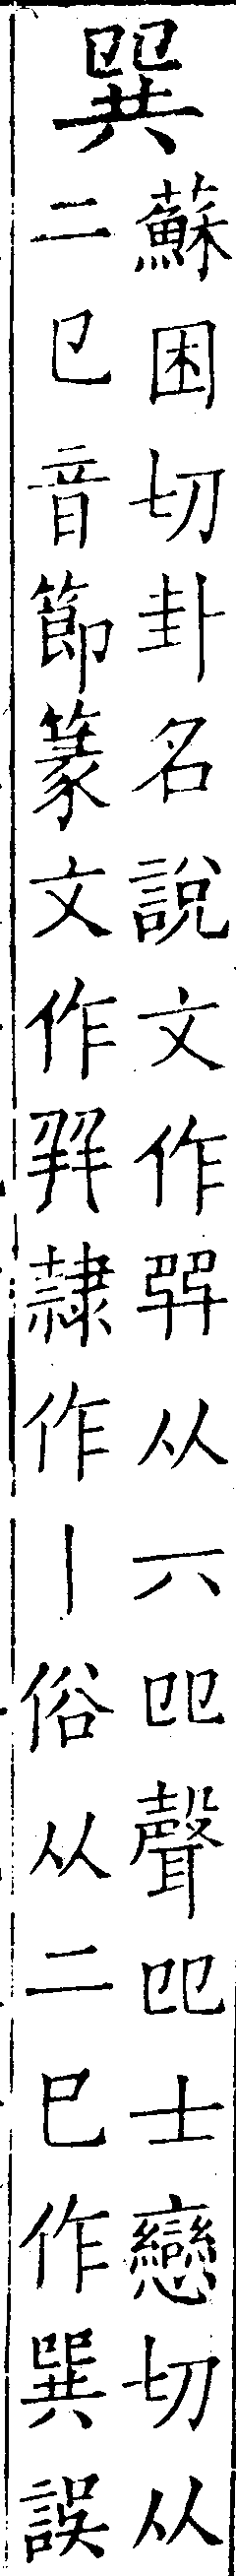 蘇困切卦名說文作从丌𠨎聲𠨎士戀切从
二㔾音節篆文作隸作丨俗从二巳作巽誤